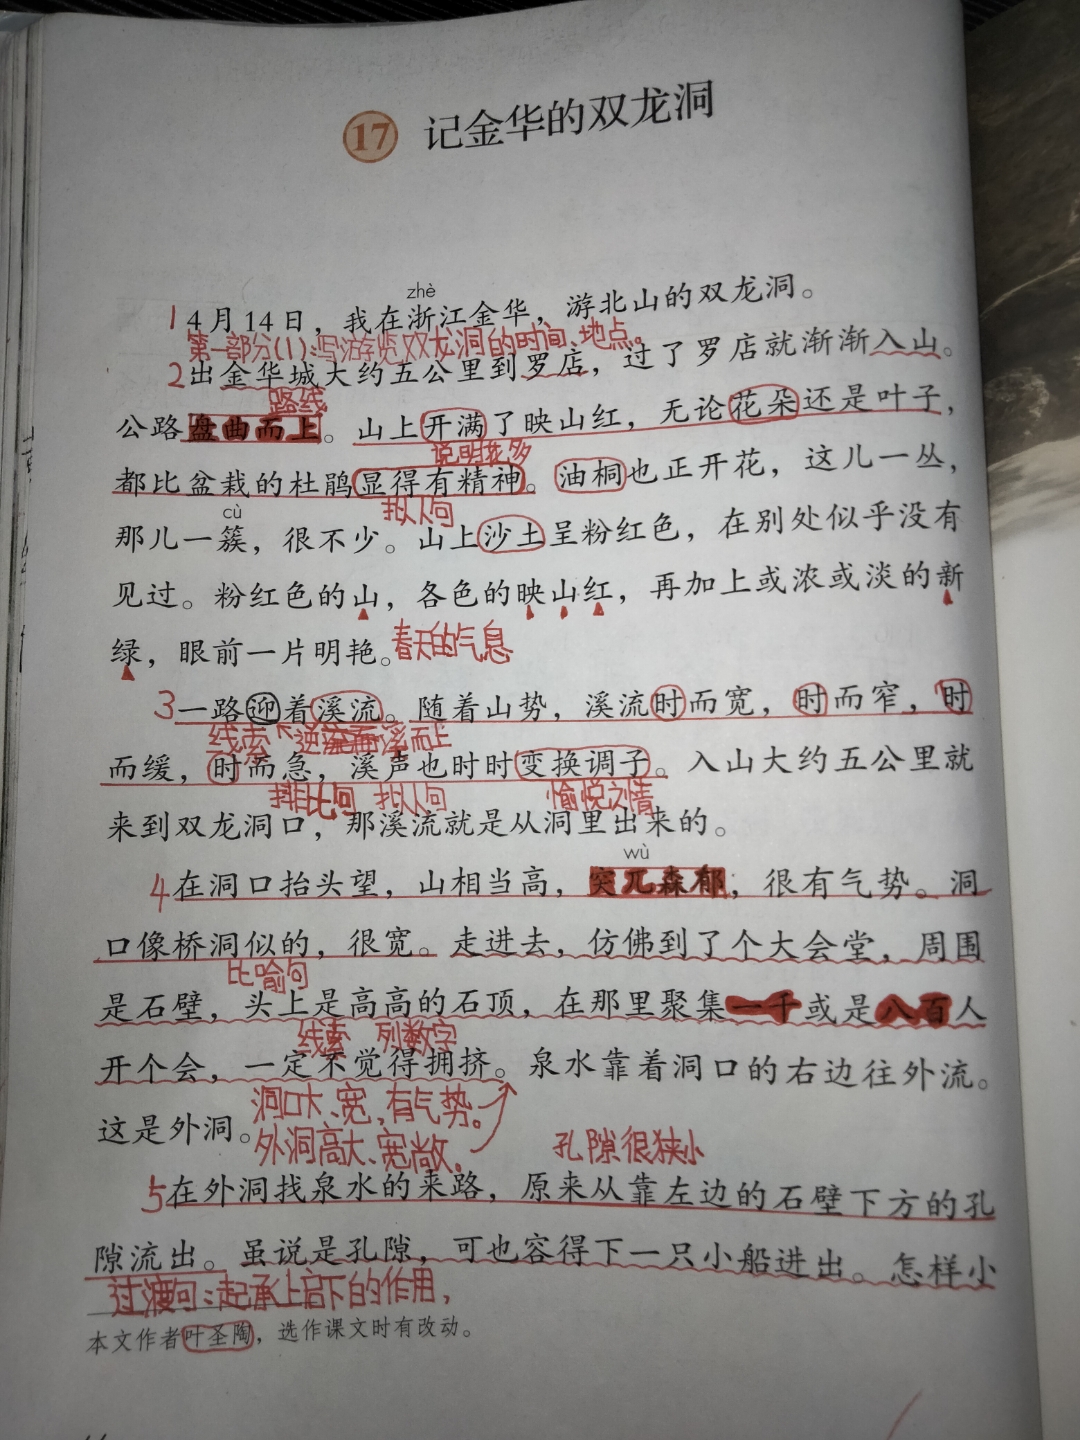 17 记金华的双龙洞
zhè
1 4月14日，我在浙江金华，游北山的双龙洞。
第一部分(1):写游览双龙洞的时间、地点。
2出金华城大约五公里到罗店，过了罗店就渐渐入山。
路线
公路盘曲而上。山上开满了映山红，无论花朵还是叶子，
说明花多
都比盆栽的杜鹃显得有精神。油桐也正开花，这儿一丛，
cù 拟人句
那儿一簇，很不少。山上沙土呈粉红色，在别处似乎没有
见过。粉红色的山，各色的映山红，再加上或浓或淡的新
绿，眼前一片明艳。春天的气息
3一路迎着溪流。随着山势，溪流时而宽，时而窄，时
线索 逆溪而上
而缓，时而急，溪声也时时变换调子。入山大约五公里就
排比句 拟人句 愉悦之情
来到双龙洞口，那溪流就是从洞里出来的。
wù
4在洞口抬头望，山相当高，突兀森郁，很有气势。洞
口像桥洞似的，很宽。走进去，仿佛到了个大会堂，周围
比喻句
是石壁，头上是高高的石顶，在那里聚集一千或是八百人
线索 列数字
开个会，一定不觉得拥挤。泉水靠着洞口的右边往外流。
洞口大、宽，有气势。
这是外洞。
外洞高大、宽敞。 孔隙很狭小
5在外洞找泉水的来路，原来从靠左边的石壁下方的孔
隙流出。虽说是孔隙，可也容得下一只小船进出。怎样小
过渡句：起承上启下的作用，
本文作者叶圣陶，选作课文时有改动。